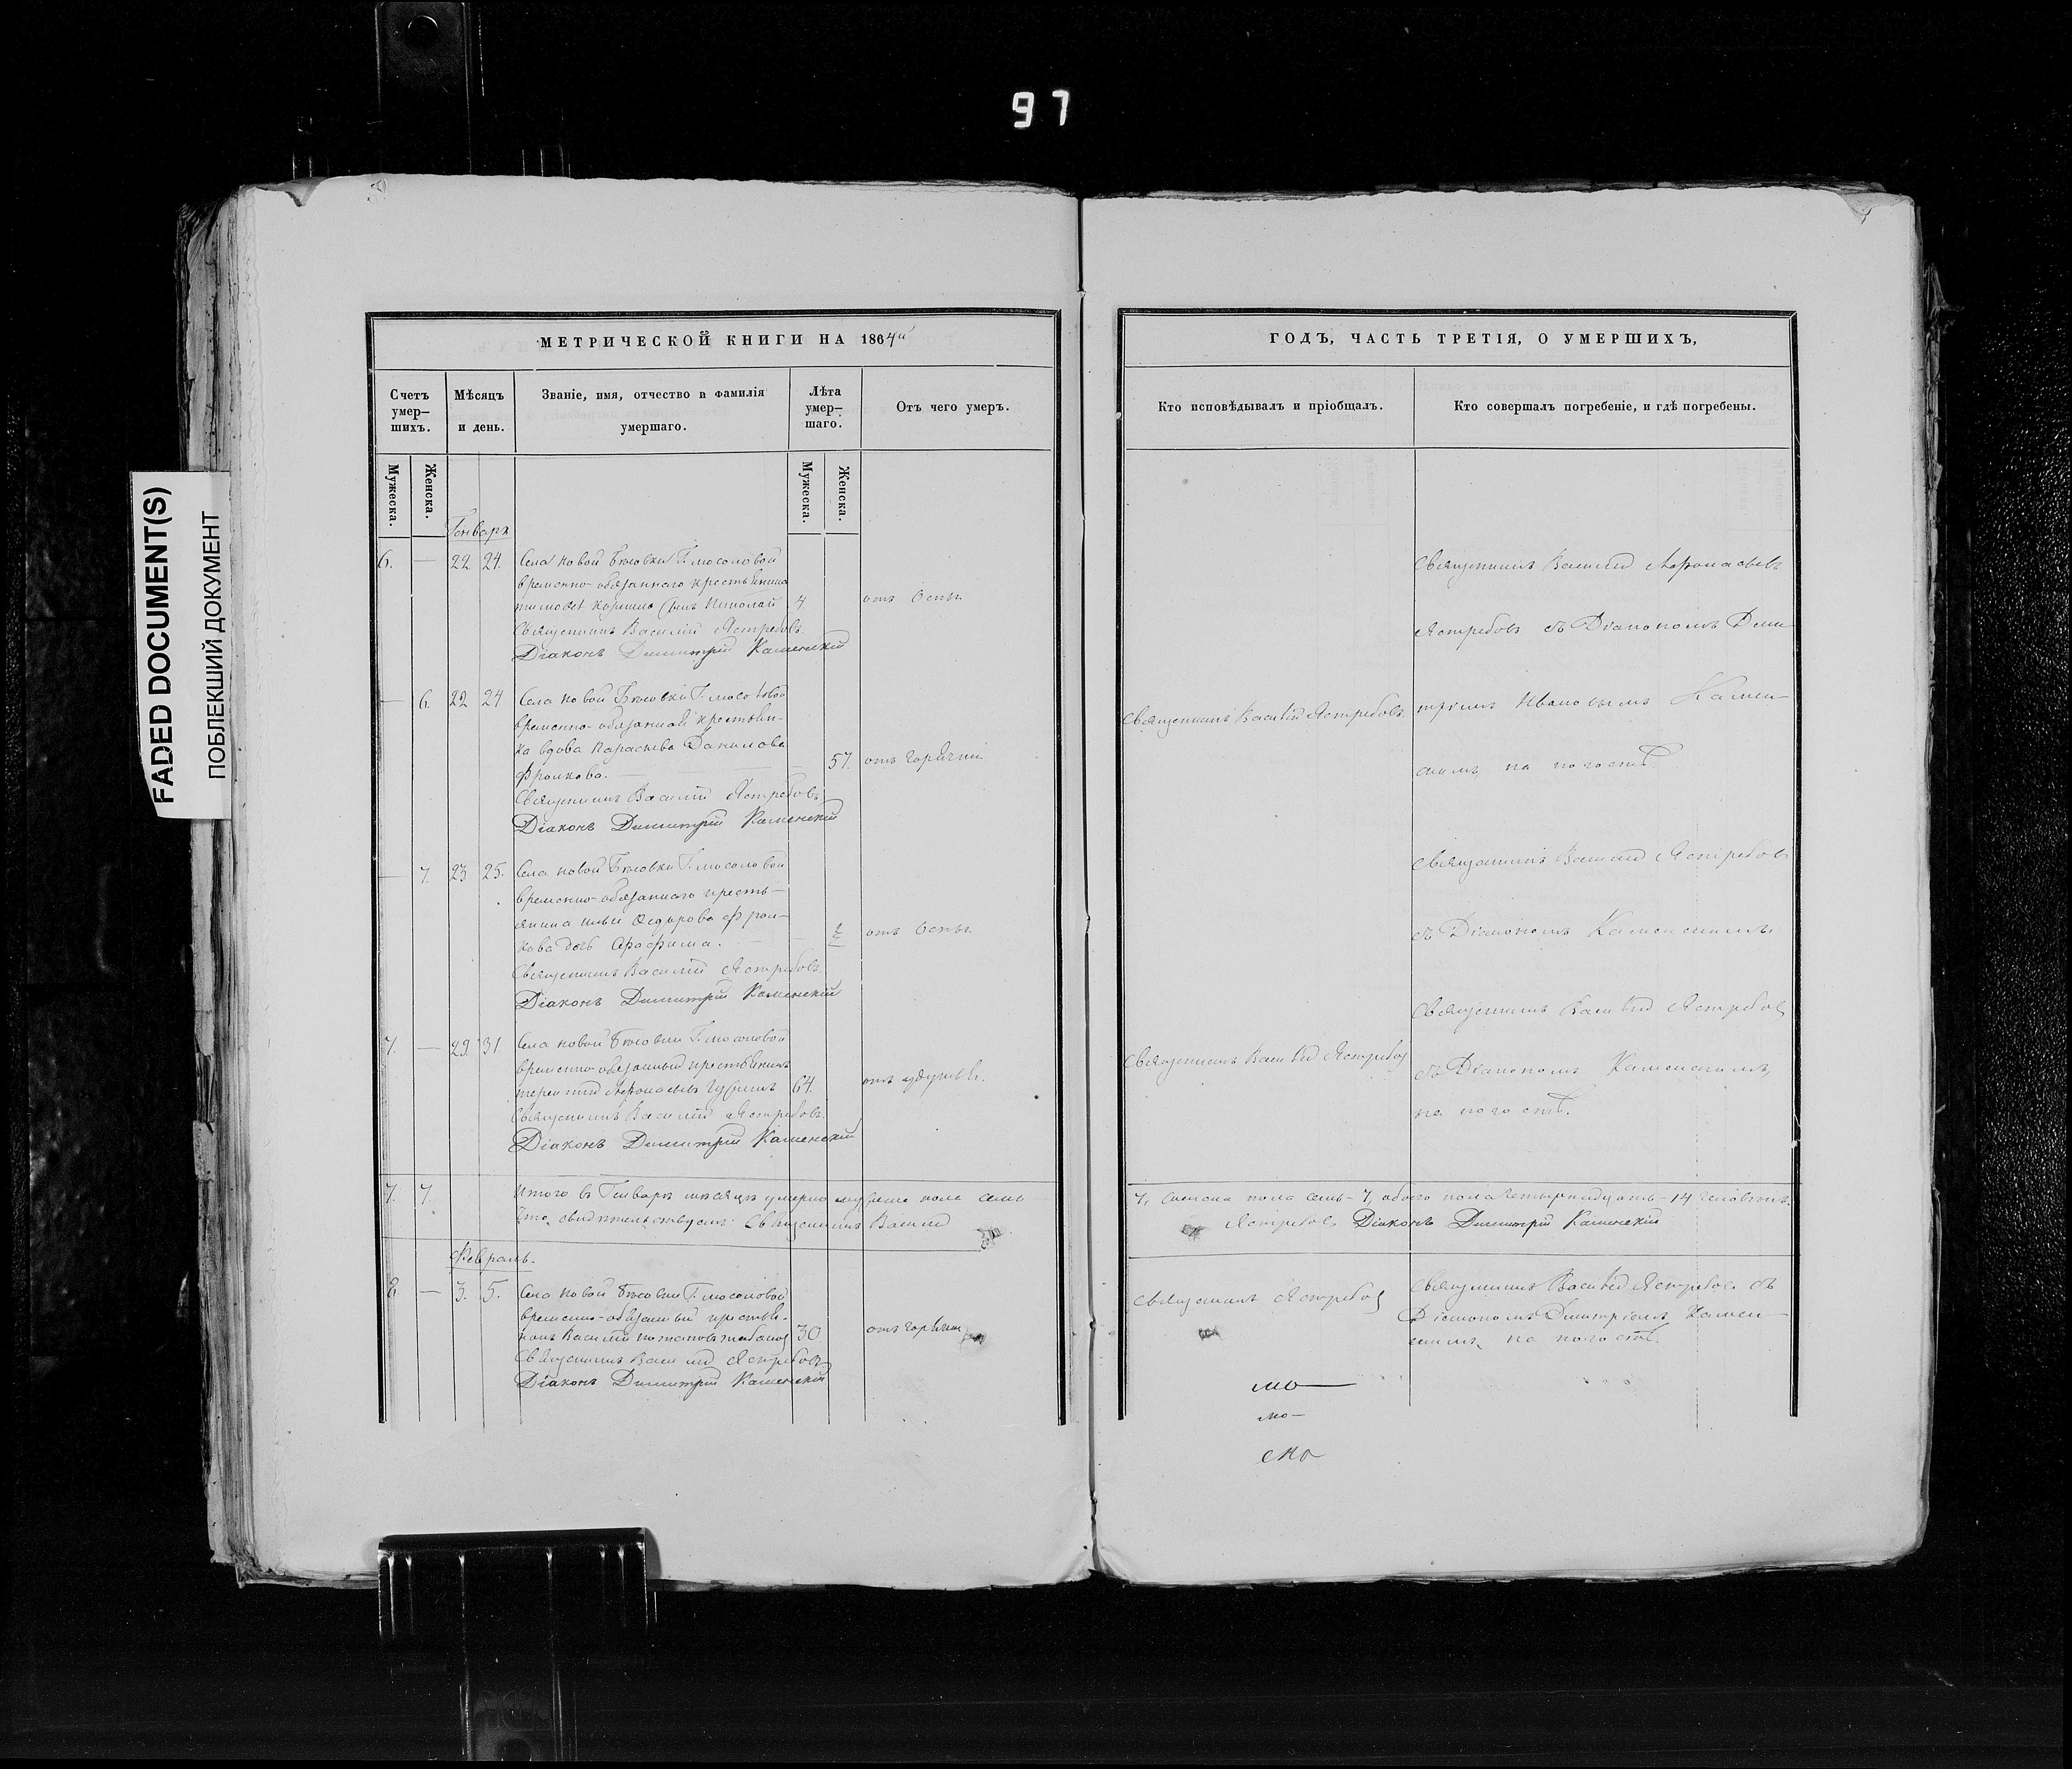 97
FADED DOCUMENT(S)
ПОБЛЕКШИЙ ДОКУМЕНТ
МЕТРИЧЕСКОЙ КНИГИ НА 1864й
Счетъ умер–шихъ.
Мѣсяцъ и день.
Званіе, имя, отчество и фамилія умершаго.
Лѣта умер–шаго.
Отъ чего умеръ.
Мужеска.
Женска.
Мужеска.
Женска.
Генварь
6. — 22 24. Села Новой Г. Мосоловой
временно-обязаннаго крестьянина
сынъ Николай 4 отъ Оспы.
Священникъ Василій Ястребовъ.
Діаконъ Димитрій Каменскій
— 6. 22 24 Села Новой Г. Мосоловой
временно-обязанная крестьян-
ка вдова Параскева Данилова
Фролкова. — 57. отъ горячки
Священникъ Василій Ястребовъ
Діаконъ Димитрій Каменскій
— 7. 23 25. Села Новой Г. Мосоловой
временно-обязаннаго кресть-
янина Ильи Ѳедорова Фрол-
кова дочь — отъ Оспы
Священникъ Василій Ястребовъ.
Діаконъ Димитрій Каменскій
7. — 29. 31. Села Новой Г. Мосоловой
временно-обязанный крестьянинъ
Терентій Афонасьевъ 64.
Священникъ Василій Ястребовъ.
Діаконъ Димитрій Каменскій
7. 7. Итого въ Генварѣ мѣсяцѣ умерло мужеска пола семь
Что свидѣтельствуемъ: Священникъ Василій
Февраль.
— 3. 5. Села Новой Г. Мосоловой
временно-обязанный крестья-
нинъ Василій 30. отъ горячки
Священникъ Василій Ястребовъ
Діаконъ Димитрій Каменскій
ГОДЪ, ЧАСТЬ ТРЕТІЯ, О УМЕРШИХЪ,
Кто исповѣдывалъ и пріобщалъ.
Кто совершалъ погребеніе, и гдѣ погребены.
Священникъ Василій Афонасьевъ
Ястребовъ съ Діакономъ Дими-
Священникъ Василій Ястребовъ. тріемъ Ивановымъ Камен-
скимъ, на погостѣ.
Священникъ Василій Ястребовъ
съ Діакономъ Каменскимъ
Священникъ Василій Ястребовъ
Священникъ Василій Ястребовъ съ Діакономъ Каменскимъ,
на погостѣ.
7, женска пола семь – 7, обоего пола четырнадцать – 14 человѣкъ.
Ястребовъ Діаконъ Димитрій Каменскій
Священникъ Ястребовъ Священникъ Василій Ястребовъ съ
Діакономъ Димитріемъ Камен-
скимъ, на погостѣ.